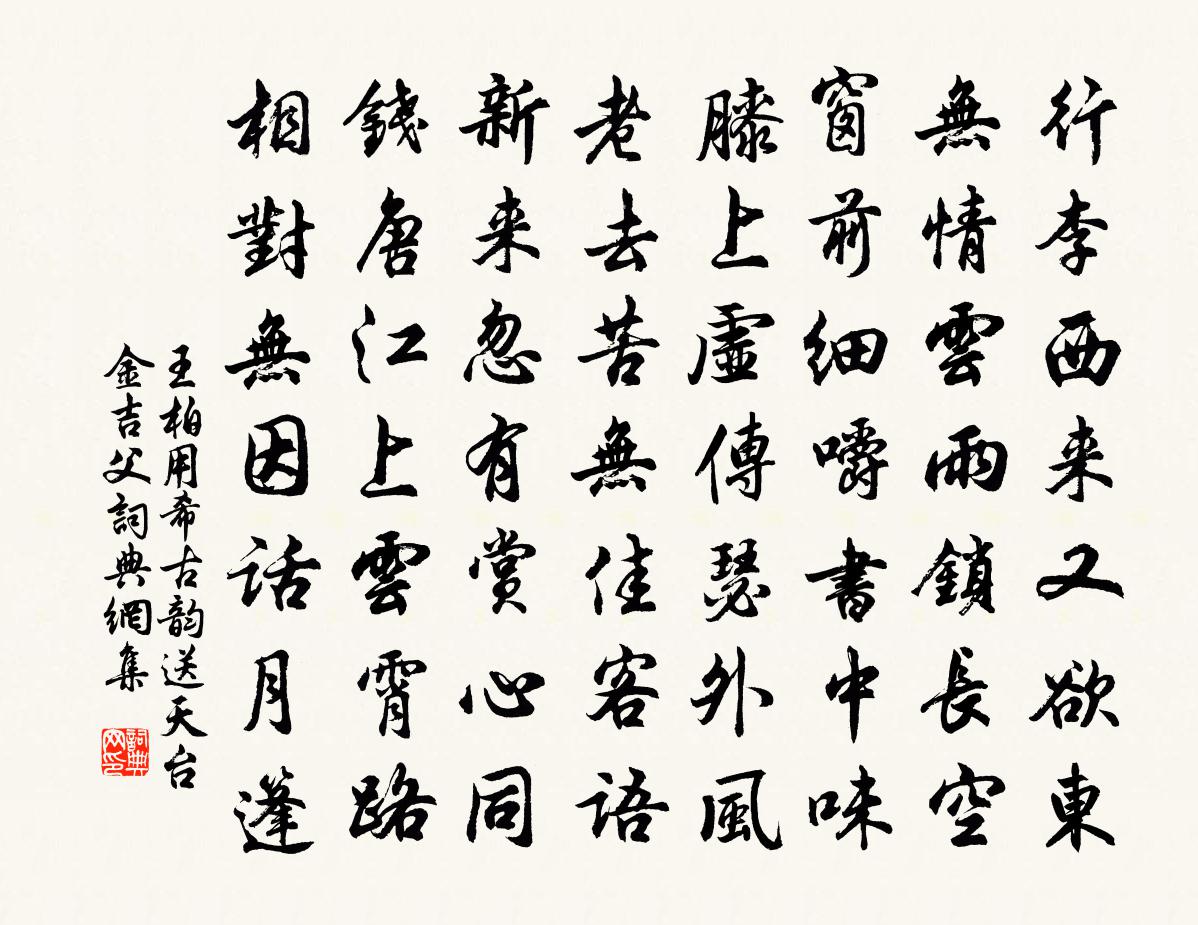 行李西来又欲東
無情雲雨鎖長空
窗前細嚼書中味
膝上虛傳瑟外風
老去苦無佳客語
新来忽有賞心同
錢唐江上雲霄路
相對無因話月篷
王柏用希古韵送天台
金吉父詞典網集
詞典网印